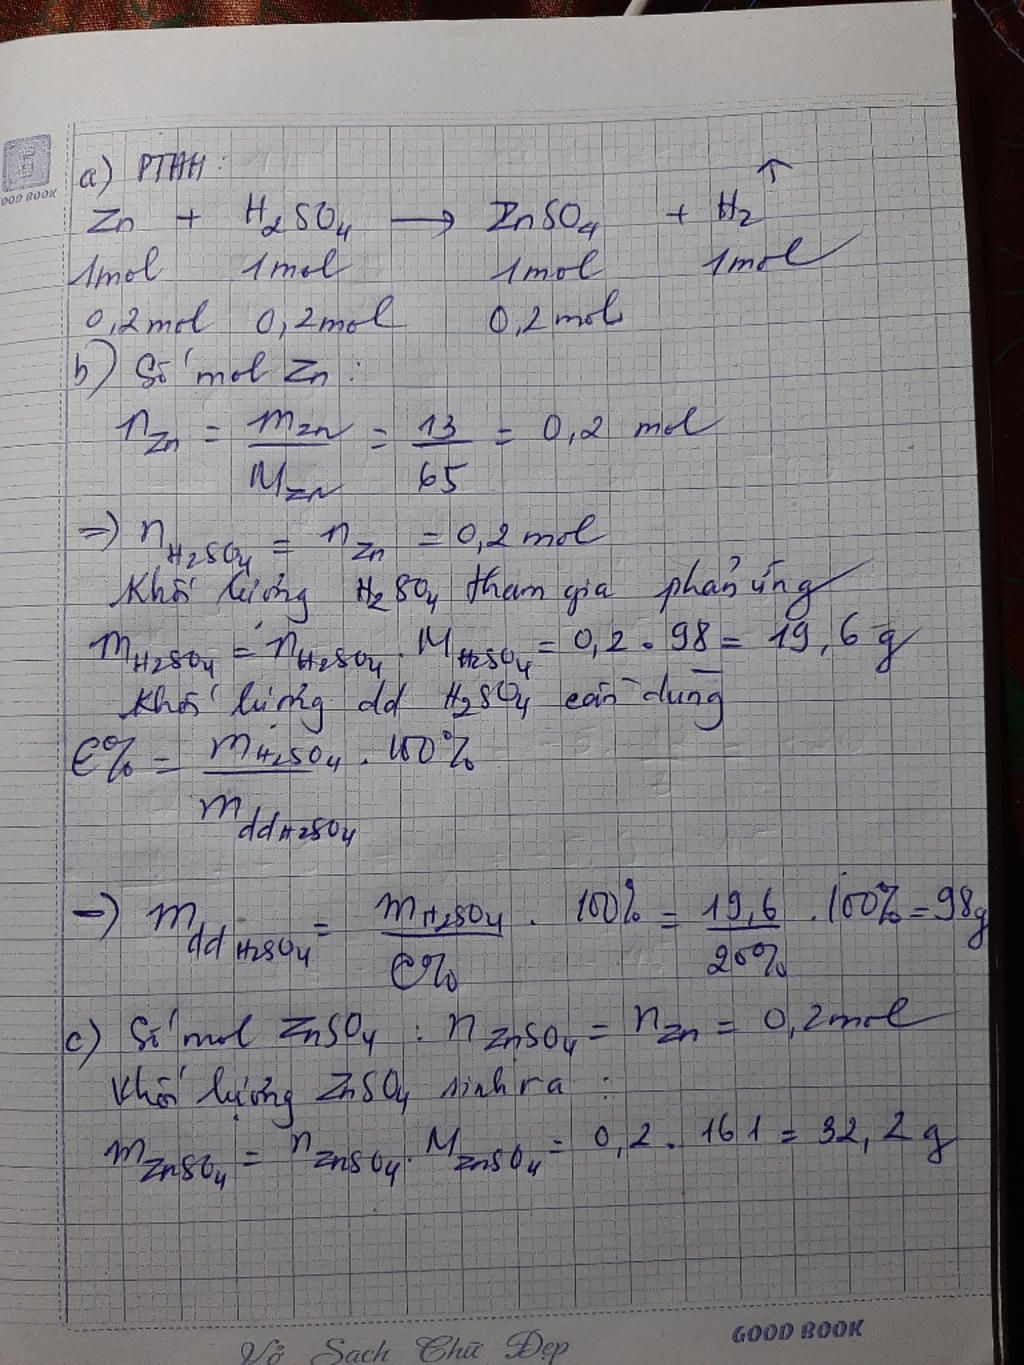 GOOD BOOK
a) PTHH:
Zn + H₂SO₄ → ZnSO₄ + H₂ ↑
1mol 1mol 1mol 1mol
0,2mol 0,2mol 0,2mol
b) Số mol Zn:
n_Zn = m_Zn / M_Zn = 13 / 65 = 0,2 mol
=) n_H₂SO₄ = n_Zn = 0,2 mol
Khối lượng H₂SO₄ tham gia phản ứng
m_H₂SO₄ = n_H₂SO₄ . M_H₂SO₄ = 0,2 . 98 = 19,6 g
Khối lượng dd H₂SO₄ cần dùng
C% = m_H₂SO₄ / m_ddH₂SO₄ . 100%
=) m_ddH₂SO₄ = m_H₂SO₄ / C% . 100% = 19,6 / 20% . 100% = 98g
c) Số mol ZnSO₄ : n_ZnSO₄ = n_Zn = 0,2mol
Khối lượng ZnSO₄ sinh ra :
m_ZnSO₄ = n_ZnSO₄ . M_ZnSO₄ = 0,2 . 161 = 32,2 g
Vở Sạch Chữ Đẹp
GOOD BOOK